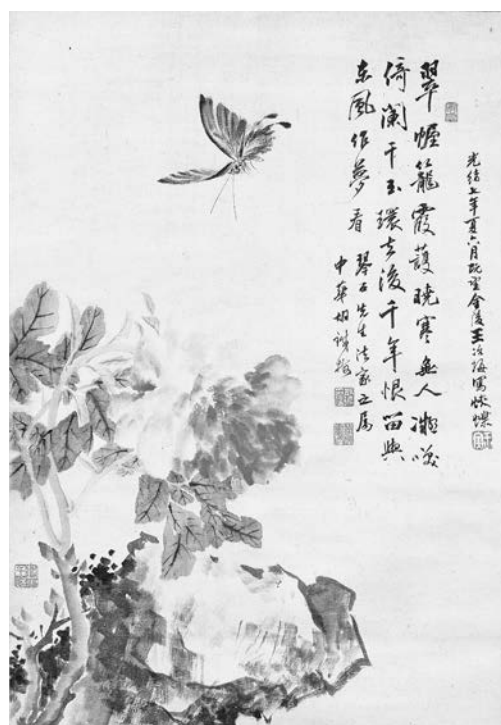 光緒七年夏六月既望金陵王冶梅寫蛺蝶
翠幄籠霞護曉寒無人凝咲
倚闌干玉環去後千年恨留與
東風作夢看
琴石先生法家之屬
中華胡銕梅